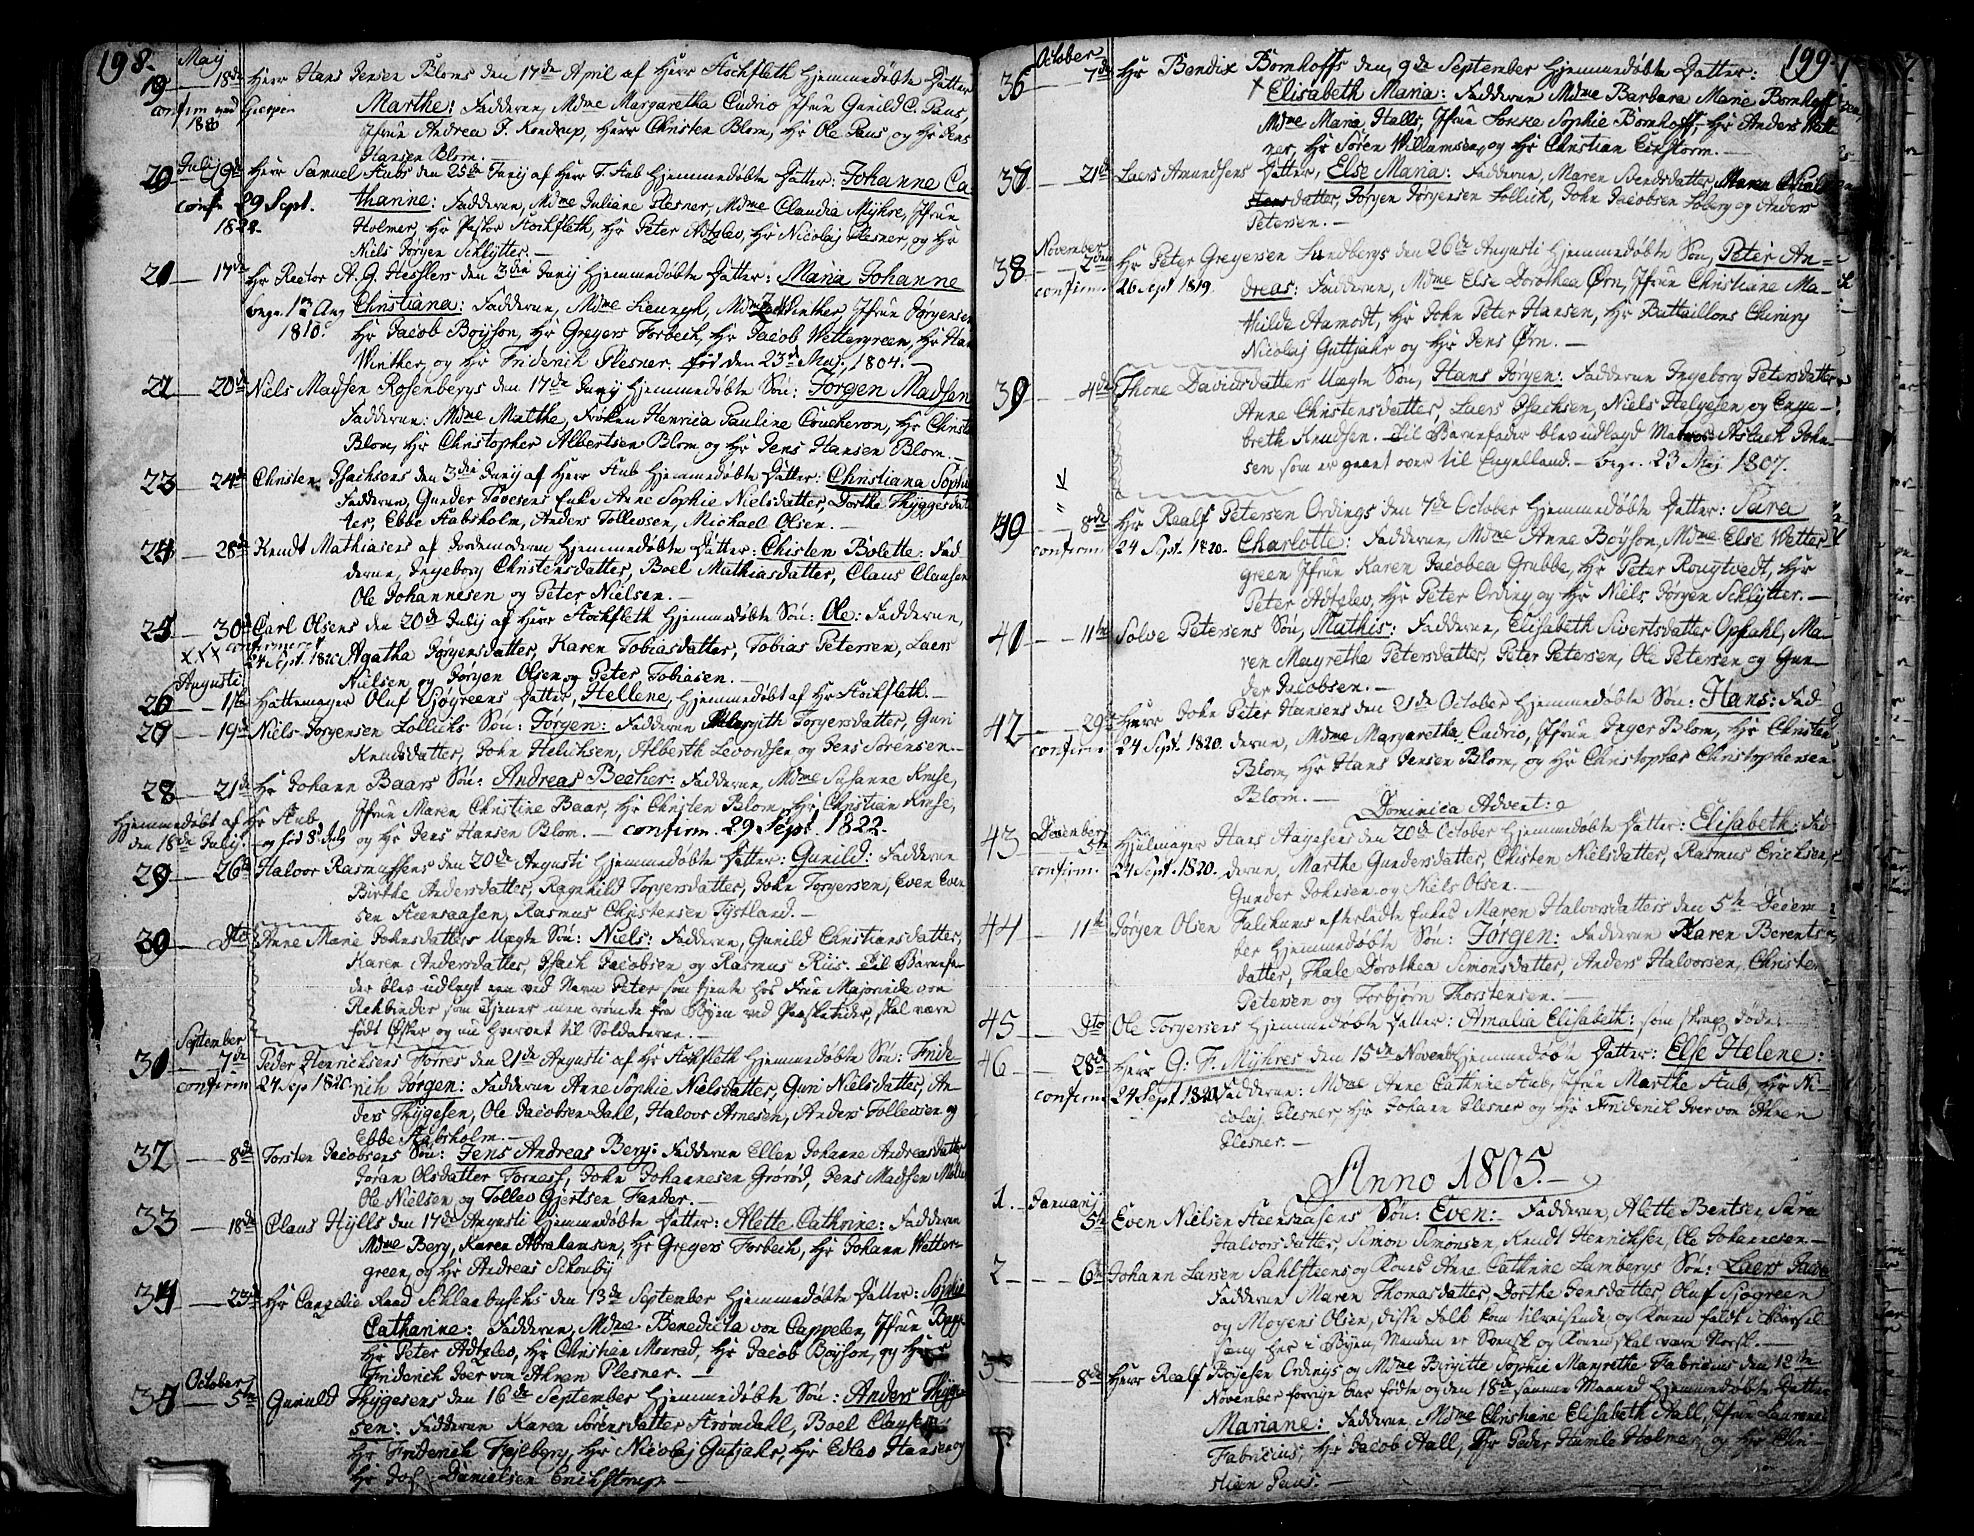 198.
May
19 18de Herr Hans Jensen Bloms den 17de April af Herr Stockfleth Hjemmedøbte Datter
confirm ved Gjerpen Marthe: Fadderne, Mdme Margaretha Cudrio, Jfrue Gunild C. Paus,
Jfrue Andrea F. Kondrup, Herr Christen Blom, Hr Ole Paus og Hr Jens
Hansen Blom.
Julij
20 9de Herr Samuel Aubs den 25de Junij af Herr F. Aub Hjemmedøbte Datter: Johanne Ca-
conf. 29 Sept. thanne: Fadderne, Mdme Juliane Plesner, Mdme Claudia Myhre, Jfrue
Holmer, Hr Pastor Stockfleth, Hr Peter Adtzlev, Hr Nicolaj Plesner, og Hr
Niels Jørgen Schlytter.
21 17de Hr Rector A. G. Hesslers den 3die Junij Hjemmedøbte Datter: Maria Johanne
Christiana: Fadderne, Mdme Winther, Jfrue Jørgensen
1810. Hr Jacob Boyson, Hr Gregers Forbech, Hr Jacob Wettergreen, Hr Han
Winther, og Hr Friderich Plesner. fød den 23de Maj. 1804.
22 20de Niels Madsen Rosenbergs den 17de Junij Hjemmedøbte Søn: Jørgen Madsen
Fadderne: Mdme Malthe, Frøken Henrica Pauline Cruckeron, Hr Christen
Blom, Hr Christopher Albertsen Blom og Hr Jens Hansen Blom.
23 24de Christen Isachsens den 3die Junij af Herr Aub Hjemmedøbte Datter: Christiana Sophi
Fadderne, Gunder Tovesens Enke Anne Sophie Nielsdatter, Dorthe Thyggesdat
ter, Ebbe Stabsholm, Anders Tollevsen, Michael Olsen.
24 28de Knudt Mathiasens af Jordemoderen Hjemmedøbte Datter: Chisten Bolette: Fad
derne, Ingeborg Christensdatter, Boel Mathiasdatter, Claus Clausen
Ole Johannesen og Peter Nielsen.
25 30de Carl Olsens den 20de Julij af Herr Stockfleth Hjemmedøbte Søn: Ole: Fadderne,
24 Sept. 1820 Agatha Jørgensdatter, Karen Tobiasdatter, Tobias Petersen, Laers
Nielsen og Jørgen Olsen og Peter Tobiasen.
Augusti
26 1ste Hattemager Oluf Sjøgreens Datter, Hellene, Hjemmedøbt af Hr Stockfleth.
27 19de Niels Jørgensen Lollicks Søn: Jørgen: Fadderne Margith Torgersdatter, Guri
Knudsdatter, John Helichsen, Alberth Levordsen og Jens Sørensen.
28 21de Hr Johann Baars Søn: Andreas Becher: Fadderne, Mdme Susanne Kruse,
Jfrue Maren Christine Baar, Hr Christen Blom, Hr Christian Kruse,
Hjemmedøbt af Hr Aub og Hr Jens Hansen Blom. confirm. 29 Sept. 1822.
den 18de Julij og fød 8de July
29 26de Halvor Rasmussens den 20de Augusti Hjemmedøbte Datter: Gunild: Fadderne
Birthe Andersdatter, Ragnhild Torgersdatter, John Torgersen, Even Even
sen Steensaasen, Rasmus Christensen Tystland.
30 Dto Anne Marie Johnsdatters Uægte Søn: Niels: Fadderne, Gunild Christiansdatter,
Karen Andersdatter, Isach Jacobsen og Rasmus Riis. Til Barnefa
der blev udlagt een ved Navn Peter som tjente hos Frue Majorinde von
Rehbinder som Tjener men rømte fra Byen ved Paasketider, skal være
født Øster og nu hvervet til Soldaterne.
September
31 7de Peder Henrichsens Torres den 21de Augusti af Hr Stockfleth Hjemmedøbte Søn: Fride-
confirm 24 Sep 1820. rich Jørgen: Fadderne Anne Sophie Nielsdatter, Guri Nielsdatter, An
ders Thygesen, Ole Jacobsen Dahl, Halvor Arnesen, Anders Tollevsen og
Ebbe Stabsholm.
32 8de Torsten Jacobsens Søn: Jens Andreas Berg: Fadderne Ellen Johanne Andreasdatter
Jøran Olsdatter Forness, John Johannesen Grorød, Jens Madsen
Ole Nielsen og Tollev Gjertsen Fander.
33 18de Claus Hylls den 17de Augusti Hjemmedøbte Datter: Alette Cathrine: Fadderne
Mdme Berg, Karen Abrahamsen, Hr Gregers Forbech, Hr Johann Wetter-
green, og Hr Andreas Schouby
34 23de Hr Cancelie Raad Schlanbuschs den 13de September Hjemmedøbte Datter: Sophie
Catharine: Fadderne, Mdme Benedicta von Cappelen, Jfrue
Hr Peter Adtzlev, Hr Christian Monrad, Hr Jacob Boyson, og Herr
Friderich Iver von Ahnen Plesner.
October
35 5te Gunuld Thygesens den 16de September Hjemmedøbte Søn: Anders Thyge
sen: Fadderne Karen Sørensdatter Strømdahl, Boel Clausen
Hr Friderich Fejlberg, Hr Nicolaj Gutjahr, Hr Edlev Hansen og
Hr Danielsen Erichstrup

199.
October
36 7de Hr Bendix Bomhoffs den 9de September Hjemmedøbte Datter:
Elisabeth Maria: Fadderne Mdme Barbara Marie Bomhoff
Mdme Maria Halls, Jfrue Søkke Sophie Bomhoff, Hr Anders Wett
ner, Hr Søren Willumsen, og Hr Christian Eckstorm.
37 21de Laers Amundsens Datter, Else Maria: Fadderne, Maren Bendsdatter, Maren
datter, Jørgen Jørgensen Lollich, John Jacobsen Loberg og Anders
Petersen.
November
38 2den Hr Peter Gregersen Lundbergs den 26de Augusti Hjemmedøbte Søn, Peter An-
confirm. 26 Sept 1819. dreas: Fadderne, Mdme Else Dorothea Ørn, Jfrue Christiane Ma-
thilde Aamodt, Hr John Peter Hansen, Hr Battaillons Chirurg
Nicolaj Guttjahr og Hr Jens Ørn.
39 4de Thone Davidsdatters Uægte Søn, Hans Jørgen: Fadderne Ingeborg Petersdatter
Anne Christensdatter, Laers Isachsen, Niels Helgesen, og Enge-
breth Knudsen. Til Barnefader blev udlagd Matros Aslach John-
sen som er gaaet over til Engelland. begr. 23 Maj 1807.
40 8de Hr Realf Petersen Ordings den 7de October Hjemmedøbte Datter: Sara
confirm. 24 Sept. 1820. Charlotte: Fadderne, Mdme Anne Boyson, Mdme Else Wetter-
green Jfrue Karen Jacobea Grubbe, Hr Peter Rougtvedt, Hr
Peter Adtzlev, Hr Peter Ording og Hr Niels Jørgen Schlytter.
41 11te Solve Petersens Søn, Mathis: Fadderne, Elisabeth Sivertsdatter Opdahl, Ma-
ren Magrethe Petersdatter, Peter Petersen, Ole Petersen og Gun-
der Jacobsen.
42 29de Herr John Peter Hansens den 21de October Hjemmedøbte Søn: Hans: Fad-
confirm. 24 Sept. 1820. derne, Mdme Margaretha Cudrio, Jfrue Inger Blom, Hr Christen
Blom, Hr Hans Jensen Blom, og Hr Christopher Christophersen
Blom.
Dominica Advent:
December
43 5te Hjulmager Hans Aagesens den 20de October Hjemmedøbte Datter: Elisabeth: Fad
confirm. 24 Sept. 1820. derne, Marthe Gundersdatter, Chisten Nielsdatter, Rasmus Erichsen,
Gunder Johnsen og Niels Olsen.
44 11te Jørgen Olsen Falchums efterladte Enkes Maren Halvorsdatters den 5te Decem
ber Hjemmedøbte Søn: Jørgen: Fadderne Karen Berents
datter, Thale Dorothea Simonsdatter, Anders Halvorsen, Christen
Petersen og Torbjørn Thorstensen.
45 Dto Ole Torgersens Hjemmedøbte Datter: Amalia Elisabeth: som strax døde.
46 28de Herr G: F. Myhres den 15de Novemb Hjemmedøbte Datter: Else Helene:
confirm 24 Sept. Fadderne: Mdme Anne Cathrine Aub, Jfrue Marthe Aub, Hr Ni-
colaj Plesner, Hr Johann Plesner og Hr Friderich Iver von Ahnen
Plesner.
Anno 1805.
Januarij
1. 5te Even Nielsen Steensaasens Søn: Even: Fadderne, Alette Bentsen, Sara
Halvorsdatter, Simon Simonsen, Knudt Henrichsen, Ole Johannesen
2 6te Johann Larsen Sahlsteens og Kones Anne Cathrine Lambergs Søn: Laers Jacob
Fadderne Maren Thomasdatter, Dorthe Jensdatter, Oluf Sjøgreen
og Mogens Olsen, disse Folk kom tilreisende, og Konen faldt i Barsel
Seng her i Byen, Manden er Svensk og Konen skal være Norsk.
3 8de Herr Realf Boyesen Ordings og Mdme Birgitte Sophie Magrethe Fabricius den 12te
November forrige Aar fødte og den 18de samme Maaned Hjemmedøbte Datter
Mariane: Fadderne Mdme Christiane Elisabeth Aall, Jfrue Laurenc
Fabricius, Hr Jacob Aall, Hr Peder Humle Holmer, og Hr Chri
stian Paus.